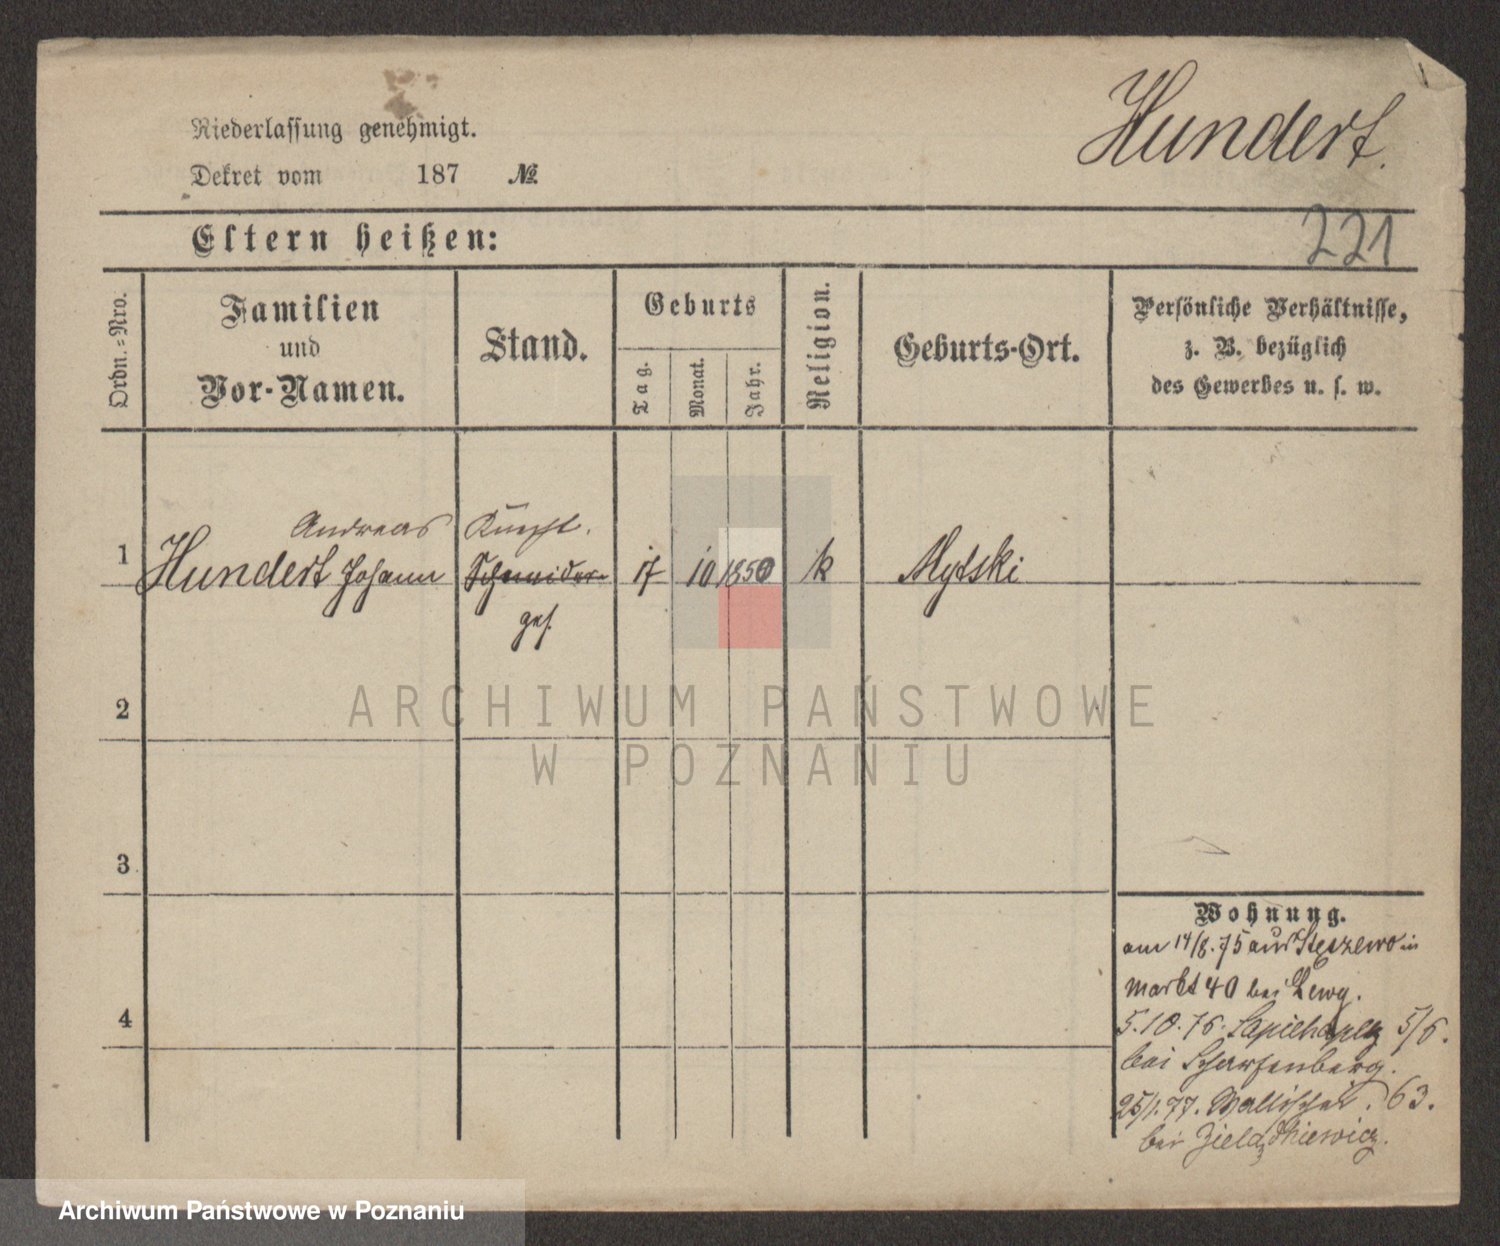 Hundert.
Niederlassung genehmigt.
Dekret vom 187 №
221
Eltern heißen:
Ordn.=Nro.
Familien
und
Vor-Namen.
Stand.
Geburts
Tag.
Monat.
Jahr.
Religion.
Geburts-Ort.
Persönliche Verhältnisse,
z. B. bezüglich
des Gewerbes u. s. w.
Andreas
1 Hundert Johann Schneider 17 10 1850 k
ges.
2
ARCHIWUM PAŃSTWOWE
W POZNANIU
3
4
Wohnung.
am 14/8. 75 aus Stęszewo in
Markt 40 bei Lewy.
5. 10. 76. Sapiehaplz 5/6.
bei Scharfenberg.
25/1. 77. Wallischei. 63.
bei
Archiwum Państwowe w Poznaniu